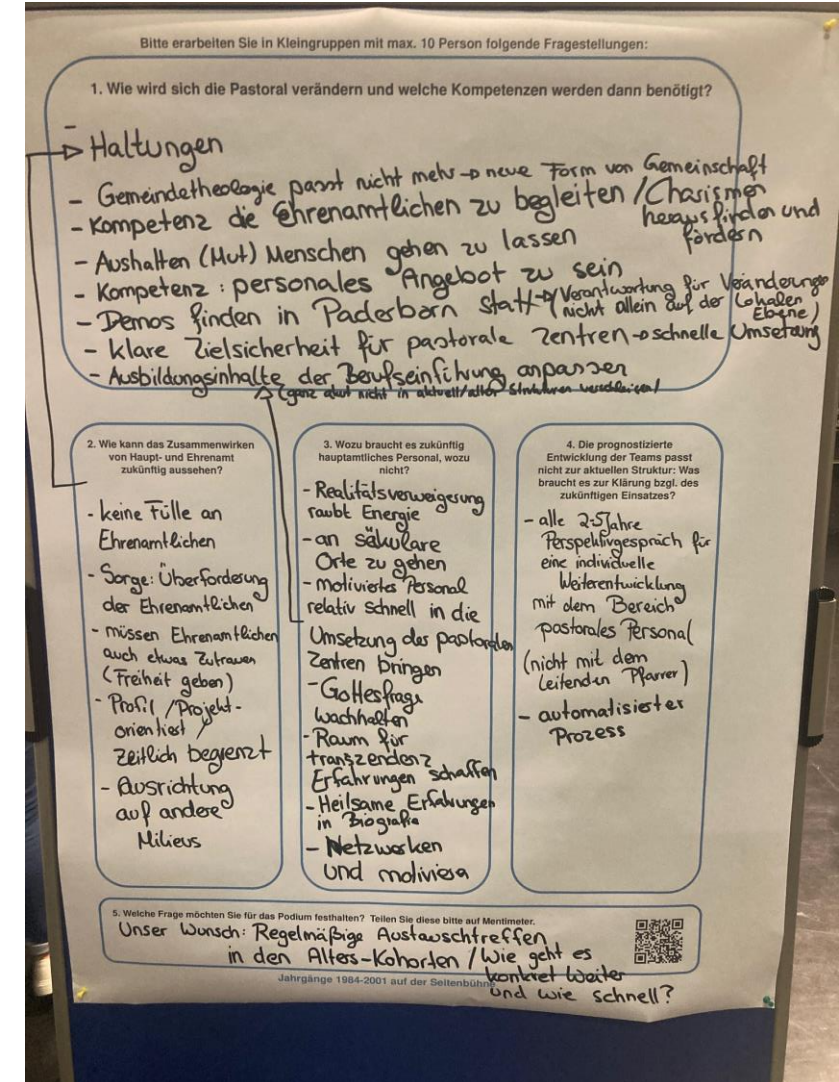 Bitte erarbeiten Sie in Kleingruppen mit max. 10 Person folgende Fragestellungen:
1. Wie wird sich die Pastoral verändern und welche Kompetenzen werden dann benötigt?
-
→ Haltungen
- Gemeindetheologie passt nicht mehr → neue Form von Gemeinschaft
- Kompetenz die Ehrenamtlichen zu begleiten / Charismen
herausfinden und
fördern
- Aushalten (Mut) Menschen gehen zu lassen
- Kompetenz: personales Angebot zu sein
- Demos finden in Paderborn statt → (Verantwortung für Veränderung
nicht allein auf der lokalen
Ebene)
- klare Zielsicherheit für pastorale Zentren → schnelle Umsetzung
- Ausbildungsinhalte der Berufseinführung anpassen
(ganz akut nicht in aktuell/alten Strukturen verschleißen)
2. Wie kann das Zusammenwirken
von Haupt- und Ehrenamt
zukünftig aussehen?
- keine Fülle an
Ehrenamtlichen
- Sorge: Überforderung
der Ehrenamtlichen
- müssen Ehrenamtlichen
auch etwas Zutrauen
(Freiheit geben)
- Profil / Projekt-
orientiert /
zeitlich begrenzt
- Ausrichtung
auf andere
Milieus
3. Wozu braucht es zukünftig
hauptamtliches Personal, wozu
nicht?
- Realitätsverweigerung
raubt Energie
- an säkulare
Orte zu gehen
- motiviertes Personal
relativ schnell in die
Umsetzung des pastoralen
Zentren bringen
- Gottesfrage
wachhalten
- Raum für
transzendenz
Erfahrungen schaffen
- Heilsame Erfahrungen
in Biografie
- Netzwerken
und motivieren
4. Die prognostizierte
Entwicklung der Teams passt
nicht zur aktuellen Struktur: Was
braucht es zur Klärung bzgl. des
zukünftigen Einsatzes?
- alle 2-5 Jahre
Perspektivgespräch für
eine individuelle
Weiterentwicklung
mit dem Bereich
pastorales Personal
(nicht mit dem
leitenden Pfarrer)
- automatisierter
Prozess
5. Welche Frage möchten Sie für das Podium festhalten? Teilen Sie diese bitte auf Mentimeter.
Unser Wunsch: Regelmäßige Austauschtreffen
in den Alters-Kohorten / Wie geht es
konkret weiter
und wie schnell?
Jahrgänge 1984-2001 auf der Seitenbühne